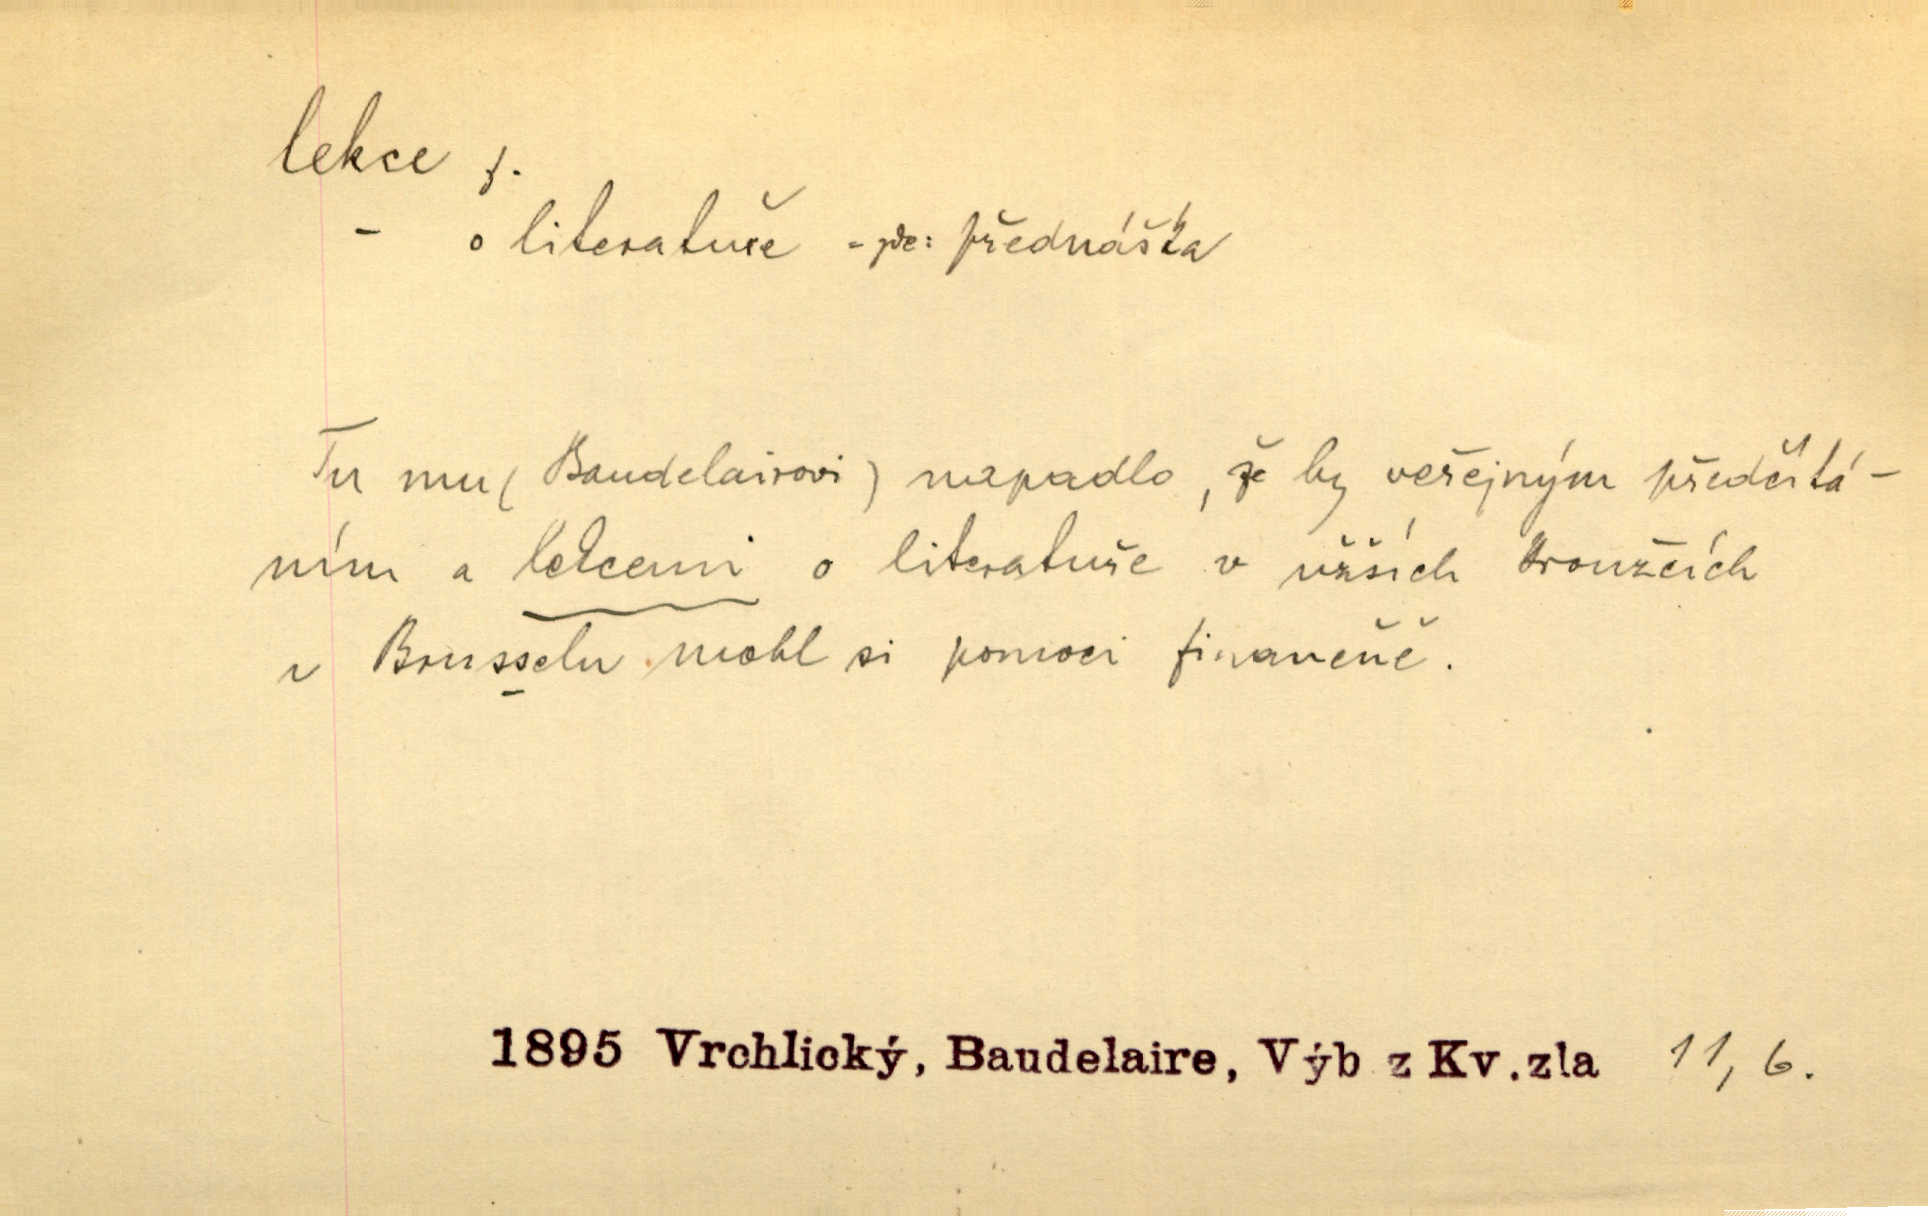 lekce f.
- o literatuře - zde: přednáška
Tu mu (Baudelairovi) napadlo, že by veřejným předčítá-
ním a lekcemi o literatuře v užších kroužcích
v Brusselu mohl si pomoci finančně.
1895 Vrchlický, Baudelaire, Výb z Kv.zla 11, 6.